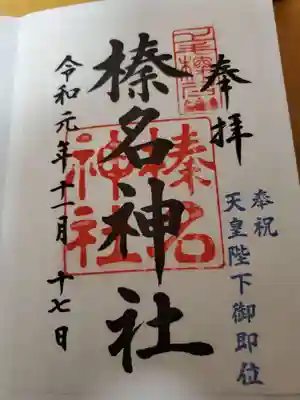 奉拝
奉祝
天皇陛下御即位
榛名神社
榛名
神社
令和元年十一月十七日